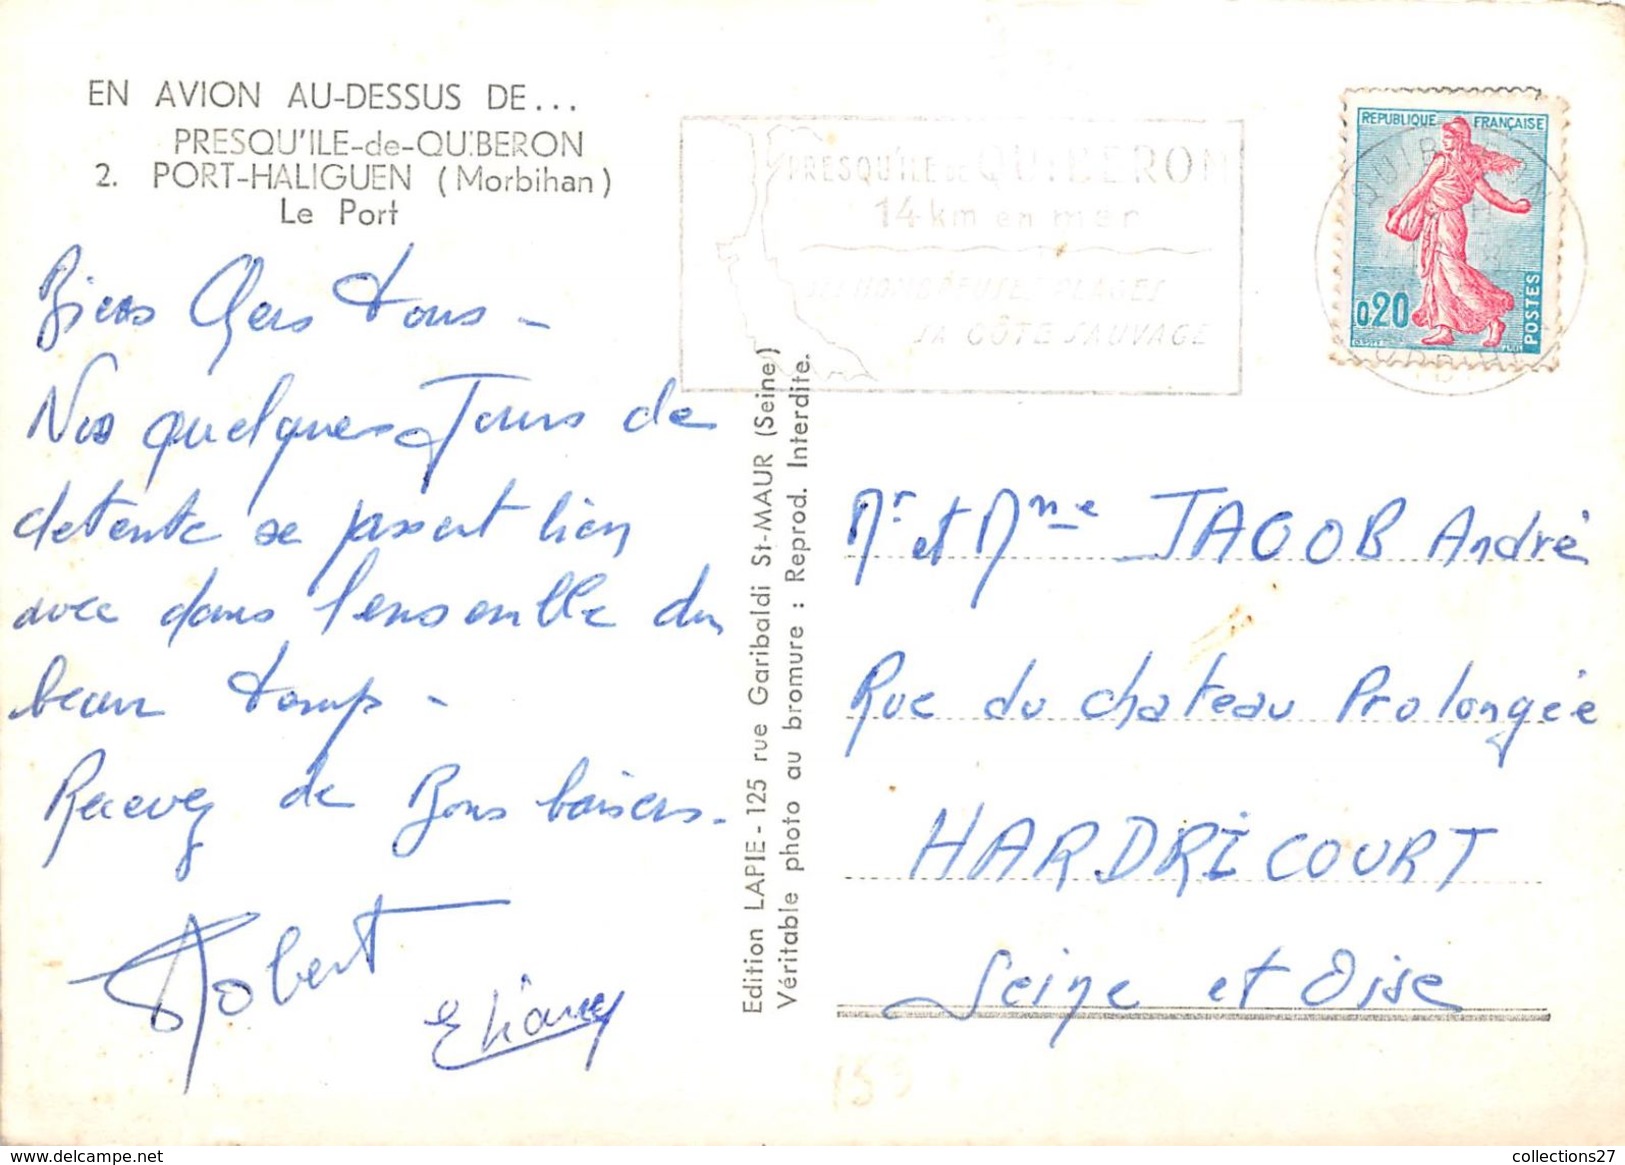 EN AVION AU-DESSUS DE...
PRESQU'ILE-de-QUIBERON
2. PORT-HALIGUEN (Morbihan)
Le Port
Biens Chers tous -
Nos quelques Jours de
detente se passent bien
avec dans l'ensemble du
beau temps -
Recevez de Bons baisers.
Robert
Eliane
Edition LAPIE - 125 rue Garibaldi St-MAUR (Seine)
Véritable photo au bromure : Reprod. Interdite.
PRESQU'ILE DE QUIBERON
14 km en mer
PLAGES
SA CÔTE SAUVAGE
REPUBLIQUE FRANÇAISE
0,20
POSTES
QUIBERON
MORBIHAN
Mr et Mme JACOB André
Rue du chateau Prolongée
HARDRICOURT
Seine et Oise
155
collections27